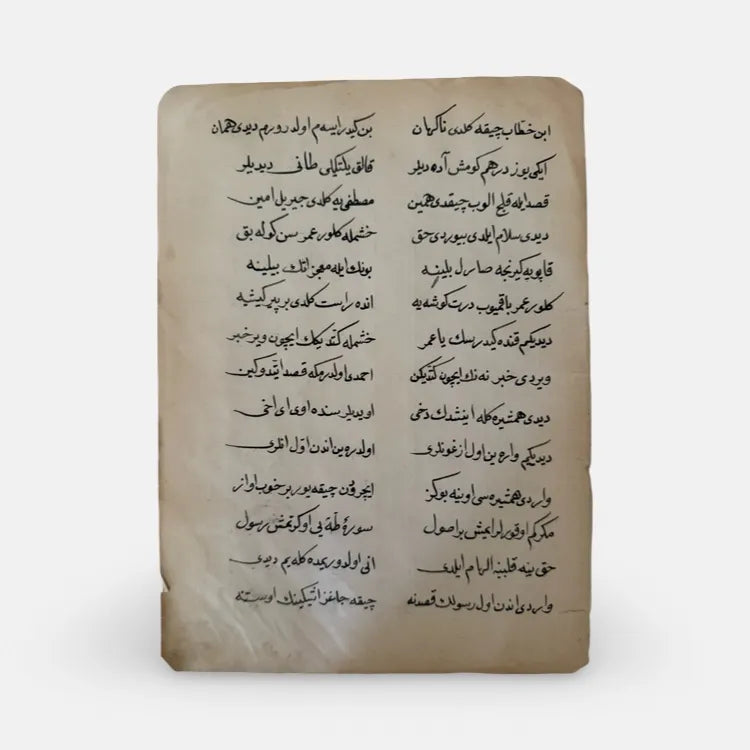 ابن خطّاب چیقه کلدی ناکهان بن کیدر ایسم اولدرورم دیدی همان
ایکی یوز درهم کومش آده دیلر قالق یلتکیلی طانی دیدیلر
قصد ایله قلیج الوب چیقدی همین مصطفی یه کلدی جبریل امین
دیدی سلام ایلدی بیوردی حق خشمله کلور عمر سن کوله بق
قاپویه کیرنجه صارل بلینه بونك ایله معجزاتك بیلینه
کلور عمر باقمیوب درت کوشه یه انده راست کلدی بر پیر کیشیه
دیدیکم قنده کیدرسك یا عمر خشمله کتدیکك ایچون ویر خبر
ویردی خبر نه نك ایچون کتدیکن احمدی اولدرمکه قصد ایتدوکین
دیدی همشیره کله ایتشدك دخی اویدیلر سنده اوی ای اخی
دیدیکم واره ین اول ازغونلری اولدره ین اندن اوّل انلری
واردی همشیره سی اوینه بوکز ایچرودن چیقه یور بر خوب اواز
مکرکم اوقورلرایمش بر اصول سورۀ طه یی اوکرتمش رسول
حق ینه قلبینه الهام ایلدی انی اولدوریمده کله یم دیدی
واردی اندن اول رسولك قصدنه چیقه جاغز اتیکینك اوستنه